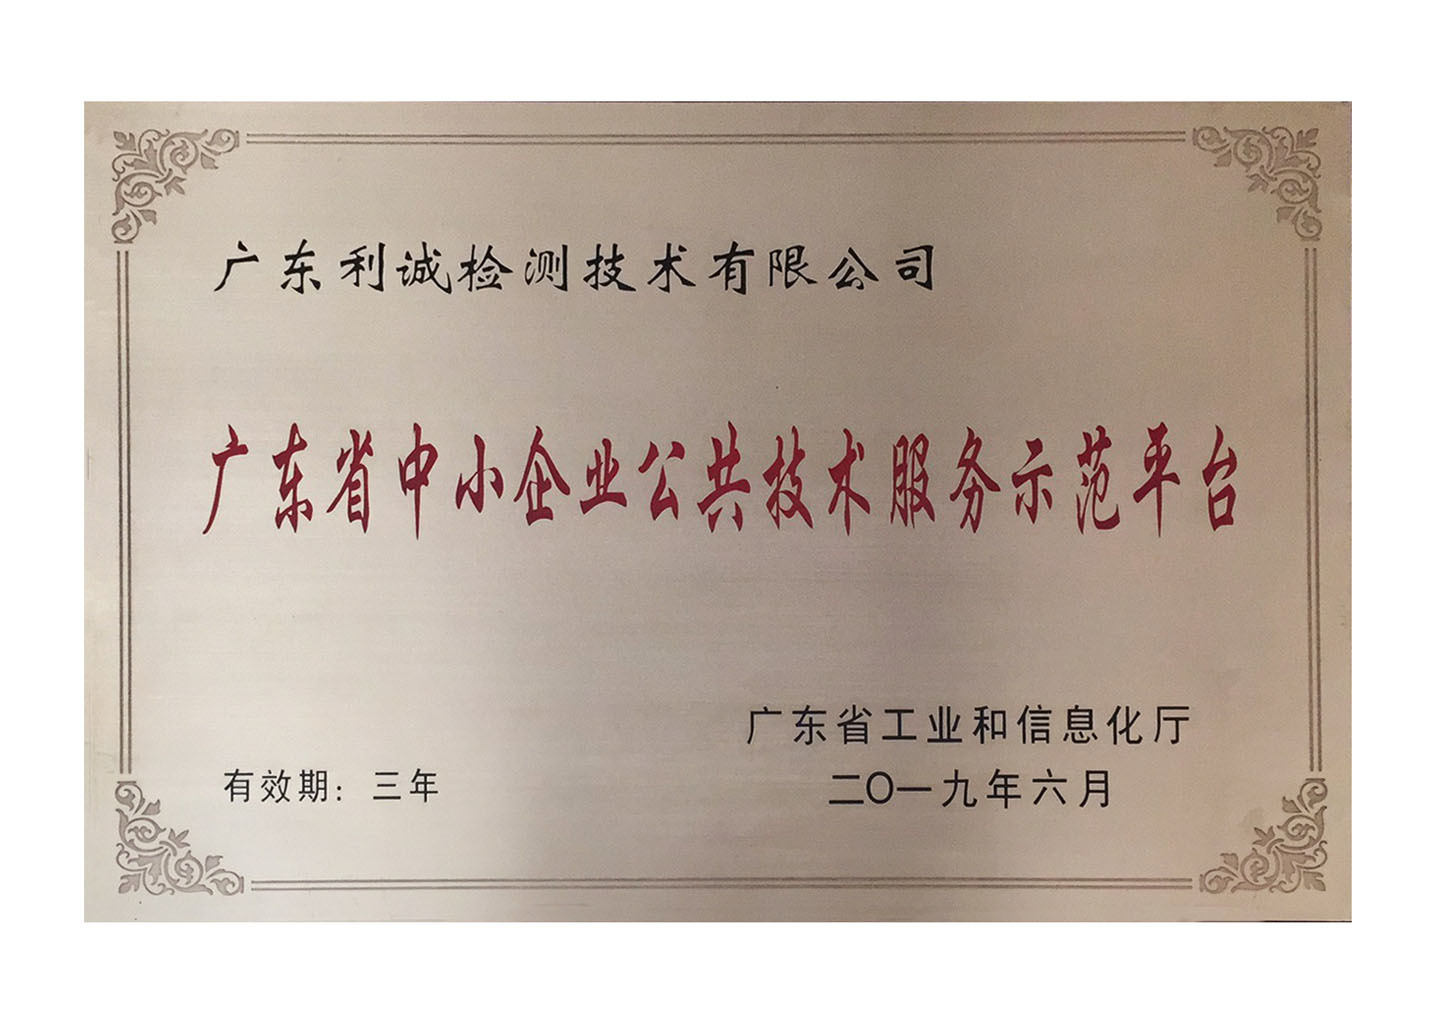 广东利诚检测技术有限公司
广东省中小企业公共技术服务示范平台
广东省工业和信息化厅
有效期：三年
二〇一九年六月